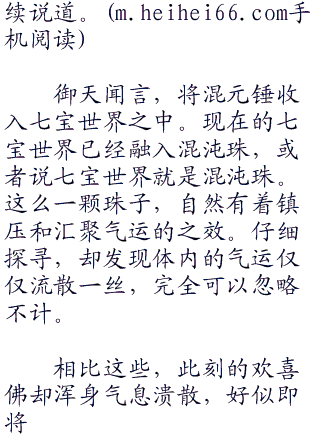 续说道。(m.heihei66.com手
机阅读)
御天闻言，将混元锤收
入七宝世界之中。现在的七
宝世界已经融入混沌珠，或
者说七宝世界就是混沌珠。
这么一颗珠子，自然有着镇
压和汇聚气运的之效。仔细
探寻，却发现体内的气运仅
仅流散一丝，完全可以忽略
不计。
相比这些，此刻的欢喜
佛却浑身气息溃散，好似即
将